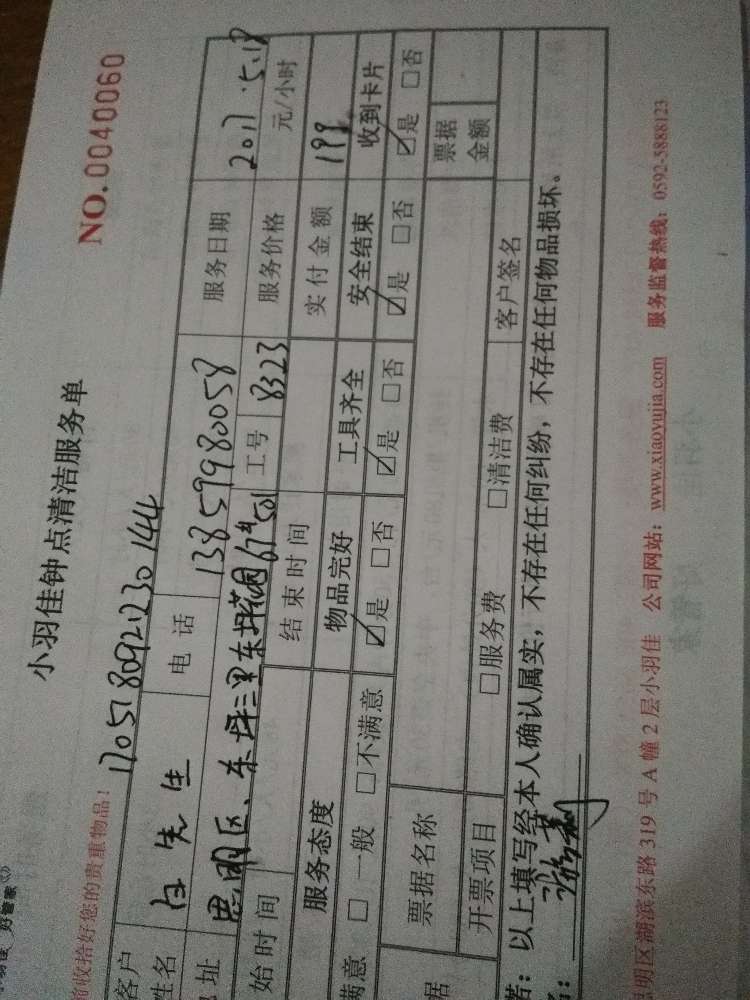 好管家
小羽佳钟点清洁服务单
NO.0040060
收拾好您的贵重物品！
1705180921230144
客户
姓名 白先生 电话 13859980058 服务日期 2017.5.18
址 思明区、东坪三里东坪花园67#501 工号 8323 服务价格 元/小时
始时间 结束时间 实付金额 199
服务态度 物品完好 工具齐全 安全结束 收到卡片
满意 □一般 □不满意 ☑是 □否 ☑是 □否 ☑是 □否 ☑是 □否
据 票据名称 票据金额
开票项目 □服务费 □清洁费 客户签名
若：以上填写经本人确认属实，不存在任何纠纷，不存在任何物品损坏。
明区湖滨东路 319 号 A 幢 2 层小羽佳 公司网站：www.xiaoyujia.com 服务监督热线：0592-5888123